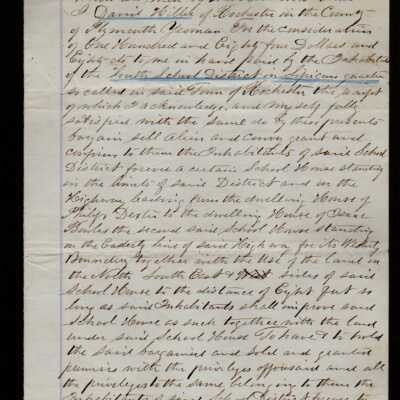 I David Hillek of Rochester in the County
of Plymouth Yeoman For the consideration
of One Hundred and Eighty four Dollars and
Eighty cts to me in hand paid by the Inhabitants
of the South School District in Sipicans quarter
so called in said Town of Rochester the receipt
of which I acknowledge and myself fully
satisfied with the same do by these presents
bargain sell alien and convey grant and
confirm to them the Inhabitants of said School
District forever a certain School House standing
in the limits of said District and in the
Highway leading from the dwelling House of
Philip Dexter to the dwelling House of
Bowles the second said School House standing
on the Easterly line of said Highway for its Westerly
Boundery together with the Use of the land on
the North South East & West sides of said
School House to the distance of Eight feet so
long as said Inhabitants shall improve said
School House as such together with the land
under said School House To have & to hold
the said bargained and sold and granted
premises with the privileges offoresaid and all
the privileges to the same belonging to them the
Inhabitants of said School District